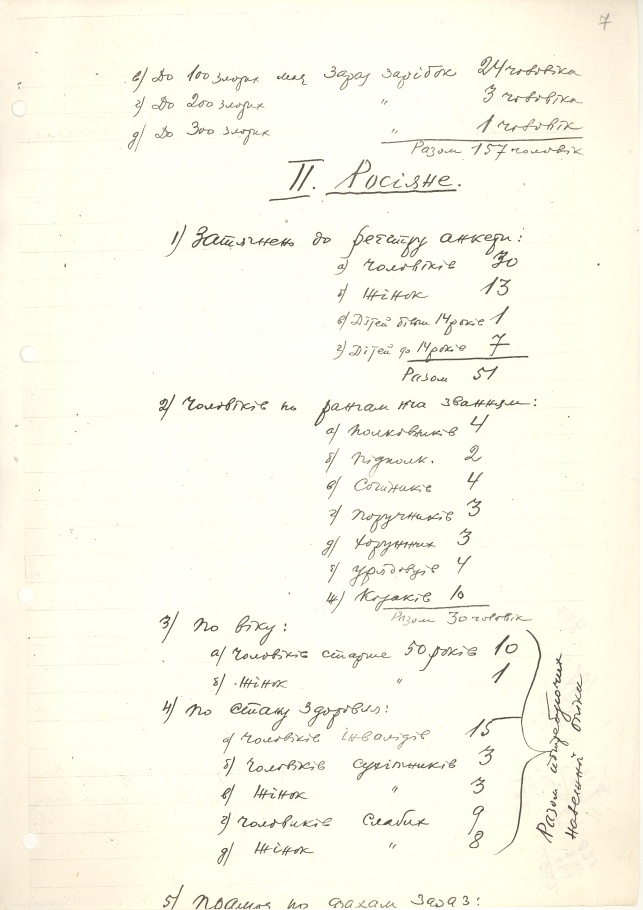 7
в) До 100 злотих має зараз зарібок 24 чоловіка
г) До 200 злотих " 3 чоловіка
д) До 300 злотих " 1 чоловік
Разом 157 чоловік
II. Росіяне.
1) Затягнено до реєстру анкети:
а) Чоловіків 30
б) Жінок 13
в) Дітей більш 14 років 1
г) Дітей до 14 років 7
Разом 51
2) Чоловіків по рангам та званням:
а) Полковників 4
б) Підполк. 2
в) Сотників 4
г) Поручників 3
д) Хорунжих 3
е) Урядовців 4
ж) Козаків 10
Разом 30 чоловік
3) По віку:
а) Чоловіків старше 50 років 10
б) Жінок " 1
4) По стану здоровля:
а) Чоловіків інвалідів 15
б) Чоловіків сухітників 3
в) Жінок " 3
г) Чоловиків слабих 9
д) Жінок " 8
Разом потребуючих
опіки
5) по фахам зараз: